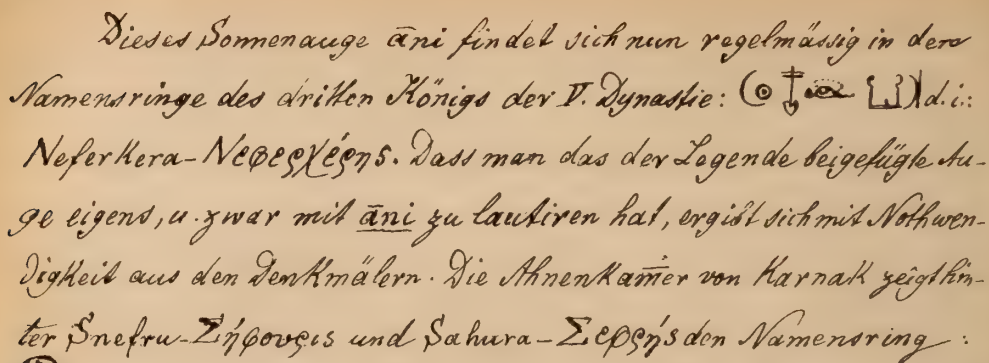 Dieses Sonnenauge āni findet sich nun regelmässig in dem
Namensringe des dritten Königs der V. Dynastie: d. i.:
Neferkera-Νεφερχέρης. Dass man das der Legende beigefügte Au-
ge eigens, u. zwar mit āni zu lautiren hat, ergibt sich mit Nothwen-
digkeit aus den Denkmälern. Die Ahnenkam̄er von Karnak zeigt hin-
ter Snefru-Σήφουρις und Sahura-Σεφρής den Namensring: